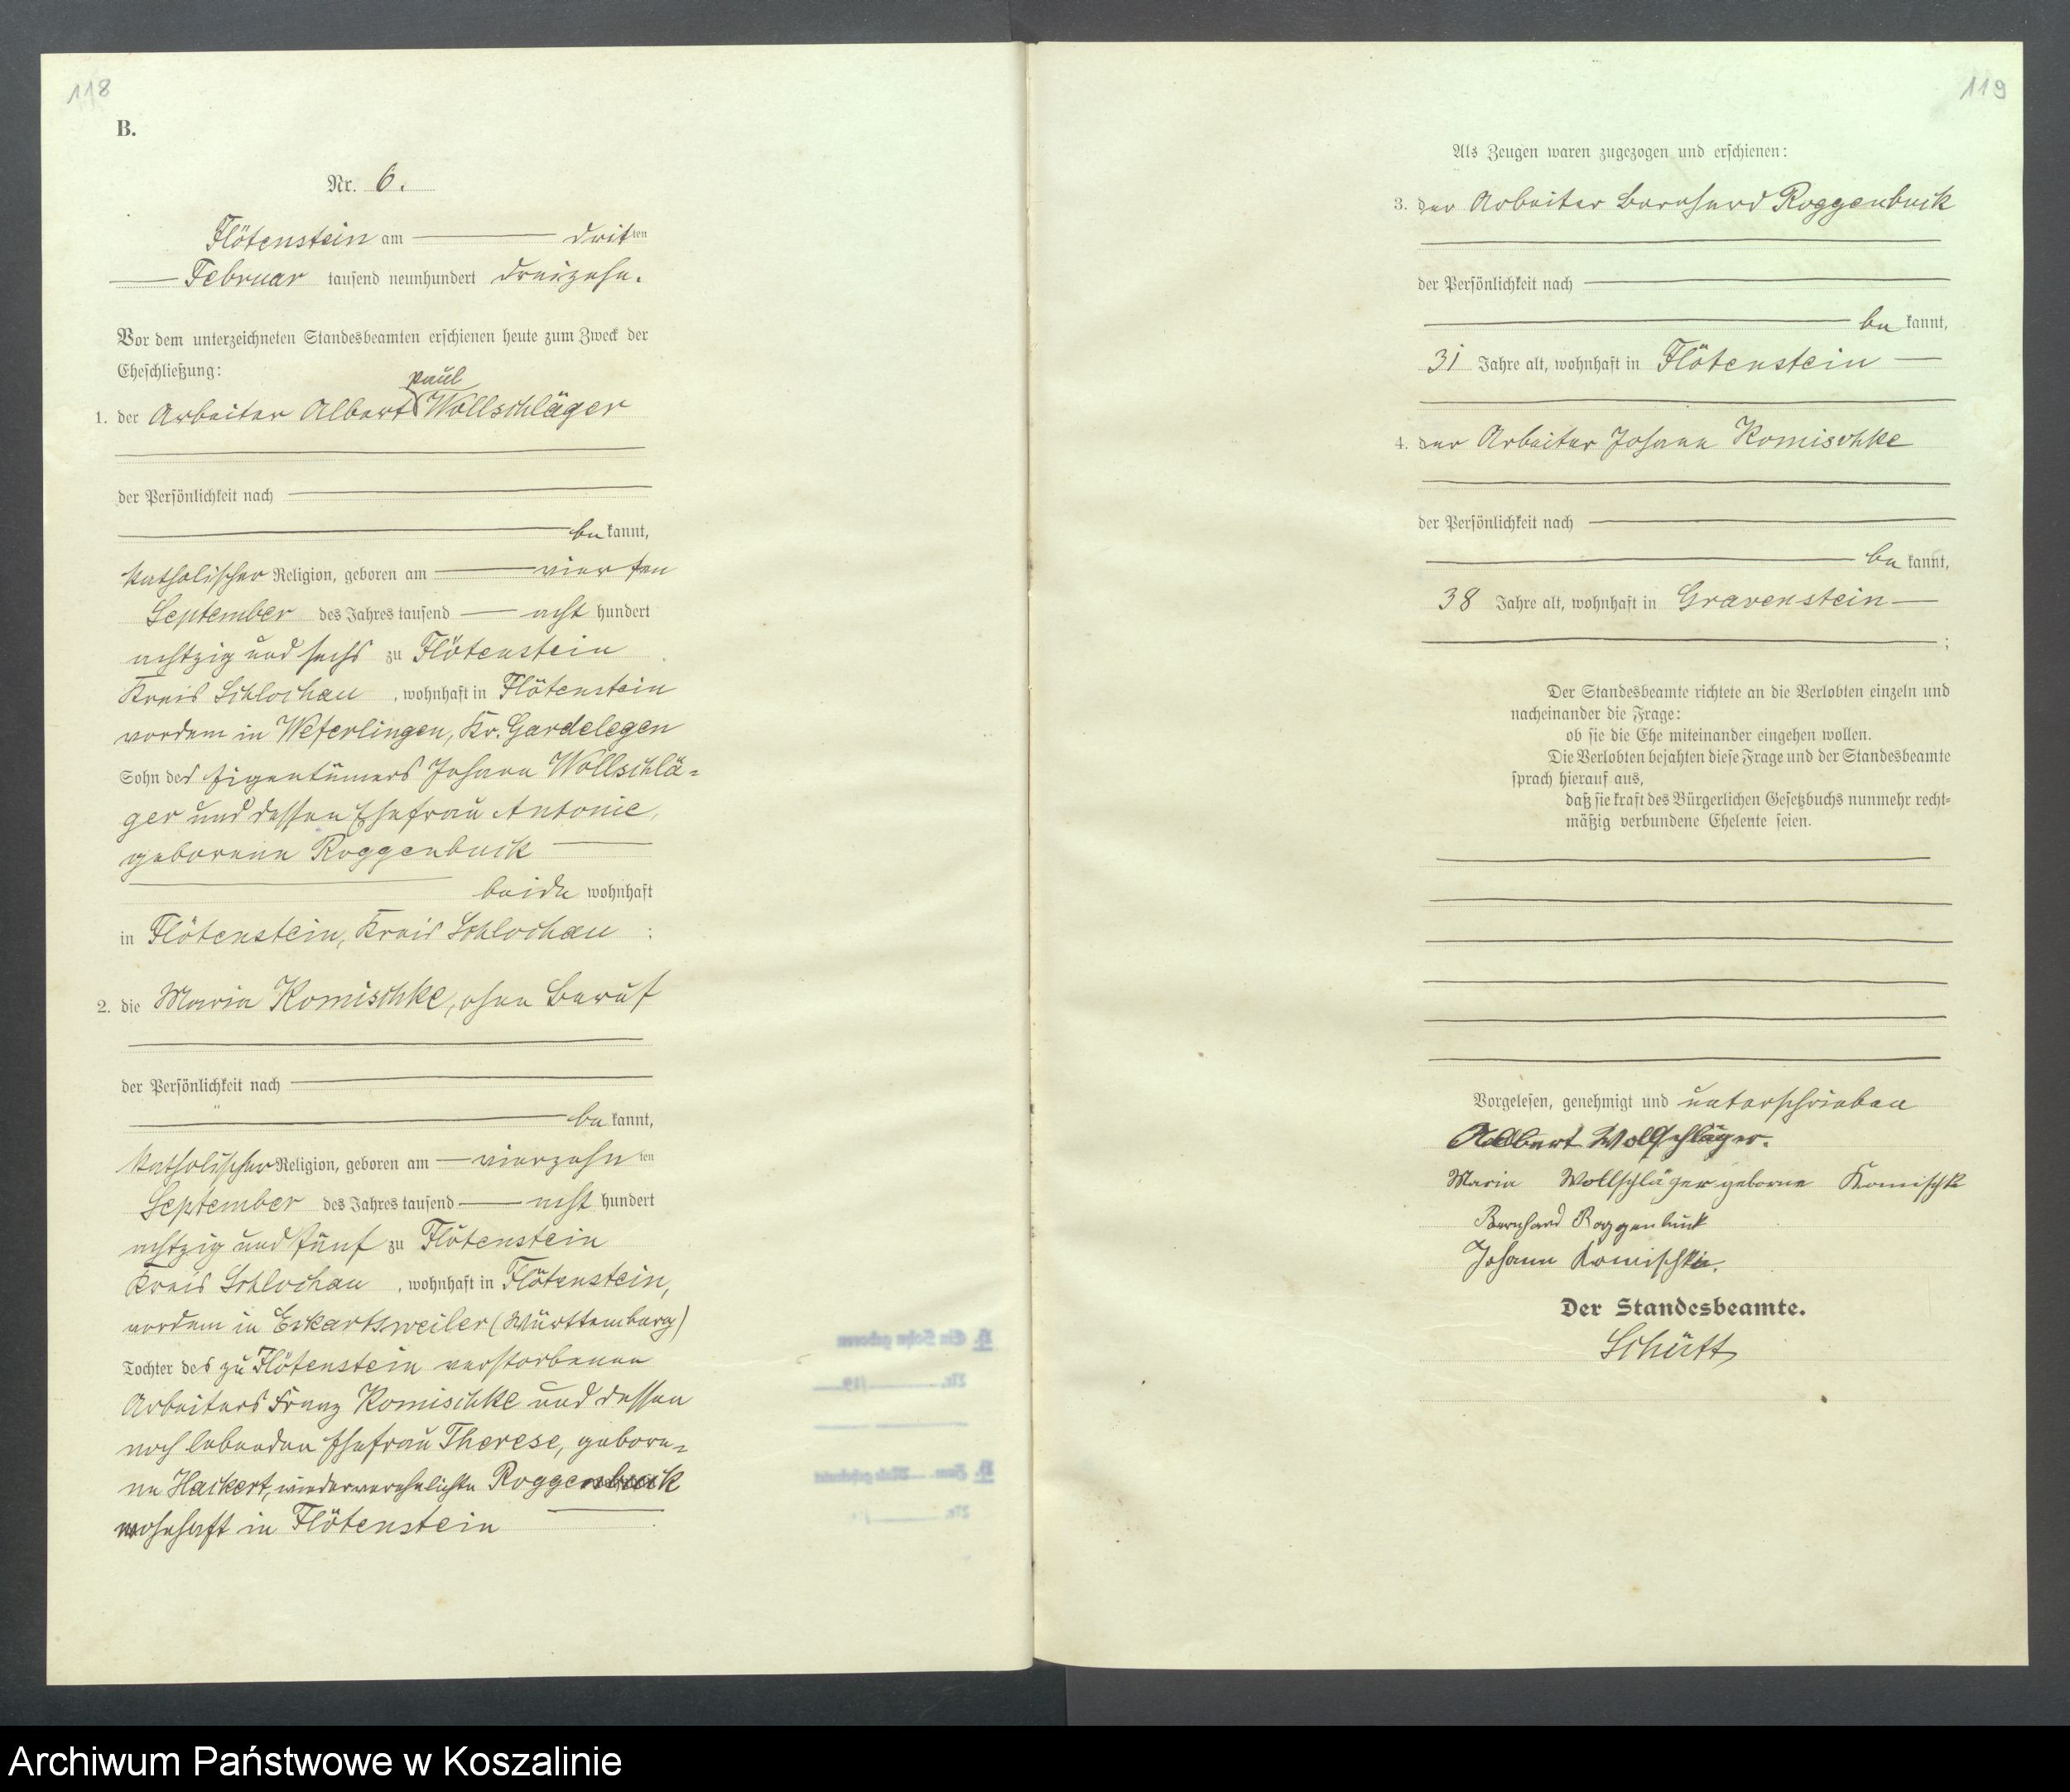 118
B.
Nr. 6.
Flötenstein am dritten
Februar tausend neunhundert dreizehn.
Vor dem unterzeichneten Standesbeamten erschienen heute zum Zweck der
Eheschließung:
Paul
1. der Arbeiter Albert Wollschläger
der Persönlichkeit nach
bekannt,
katholischer Religion, geboren am vierten
September des Jahres tausend acht hundert
achtzig und sechs zu Flötenstein
Kreis Schlochau, wohnhaft in Flötenstein
vordem in Weferlingen, Kr. Gardelegen
Sohn des Eigentümers Johann Wollschlä-
ger und dessen Ehefrau Antonie,
geborene Roggenbuck
beide wohnhaft
in Flötenstein, Kreis Schlochau :
2. die Maria Komischke, ohne Beruf
der Persönlichkeit nach
bekannt,
katholischer Religion, geboren am vierzehnten
September des Jahres tausend acht hundert
achtzig und fünf zu Flötenstein
Kreis Schlochau, wohnhaft in Flötenstein,
vordem in Eckartsweiler (Württemberg)
Tochter des zu Flötenstein verstorbenen
Arbeiters Franz Komischke und dessen
noch lebenden Ehefrau Therese, gebore-
ne Hackert, wiederverehelichte Roggenbuck
wohnhaft in Flötenstein
119
Als Zeugen waren zugezogen und erschienen:
3. der Arbeiter Bernhard Roggenbuck
der Persönlichkeit nach
bekannt,
31 Jahre alt, wohnhaft in Flötenstein
4. der Arbeiter Johann Komischke
der Persönlichkeit nach
bekannt,
38 Jahre alt, wohnhaft in Gravenstein
;
Der Standesbeamte richtete an die Verlobten einzeln und
nacheinander die Frage:
ob sie die Ehe miteinander eingehen wollen.
Die Verlobten bejahten diese Frage und der Standesbeamte
sprach hierauf aus,
daß sie kraft des Bürgerlichen Gesetzbuchs nunmehr recht-
mäßig verbundene Eheleute seien.
Vorgelesen, genehmigt und unterschrieben
Albert Wollschläger.
Maria Wollschläger geborne Komischke
Bernhard Roggenbuck
Johann Komischke.
Der Standesbeamte.
Schütt
Archiwum Państwowe w Koszalinie